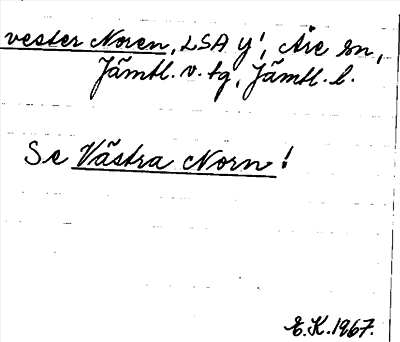 vester Noren, LSA y!, Åre sn,
Jämtl. v. tg, Jämtl. l.
Se Västra Norn!
E.K. 1967.